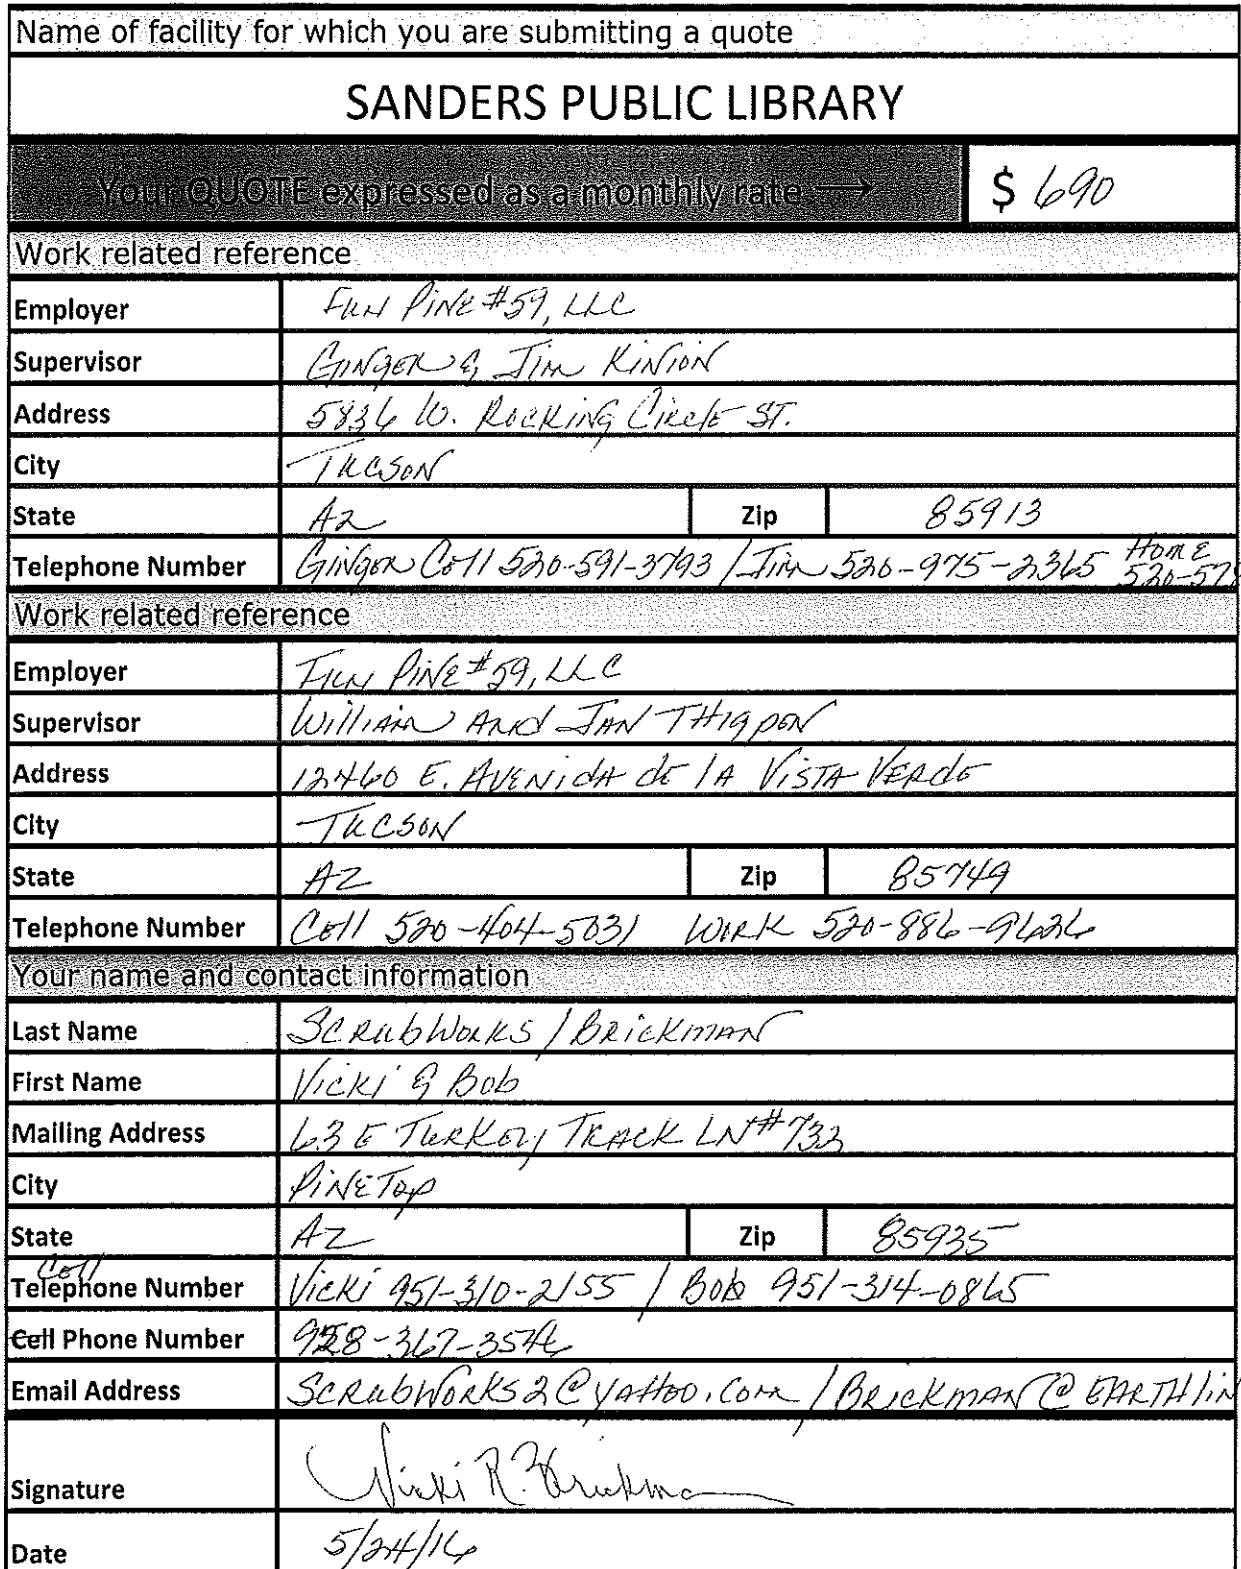 Name of facility for which you are submitting a quote
SANDERS PUBLIC LIBRARY
Your QUOTE expressed as a monthly rate → $ 690
Work related reference
Employer Fun Pine #59, LLC
Supervisor Ginger & Jim Kinion
Address 5836 W. Rocking Circle ST.
City Tucson
State AZ Zip 85913
Home
Telephone Number Ginger Cell 520-591-3793 / Jim 520-975-2365 520-578
Work related reference
Employer Fun Pine #59, LLC
Supervisor William And Jan Thigpen
Address 12460 E. Avenida de la Vista Verde
City Tucson
State AZ Zip 85749
Telephone Number Cell 520-404-5031 Work 520-886-9626
Your name and contact information
Last Name ScrubWorks / Brickman
First Name Vicki & Bob
Mailing Address 63 E Turkey Track LN #732
City PineTop
State AZ Zip 85935
Cell
Telephone Number Vicki 951-310-2155 / Bob 951-314-0865
Cell Phone Number 928-367-3546
Email Address ScrubWorks2@yahoo.com / Brickman@Earthlin
Signature Vicki R. Brickman
Date 5/24/16